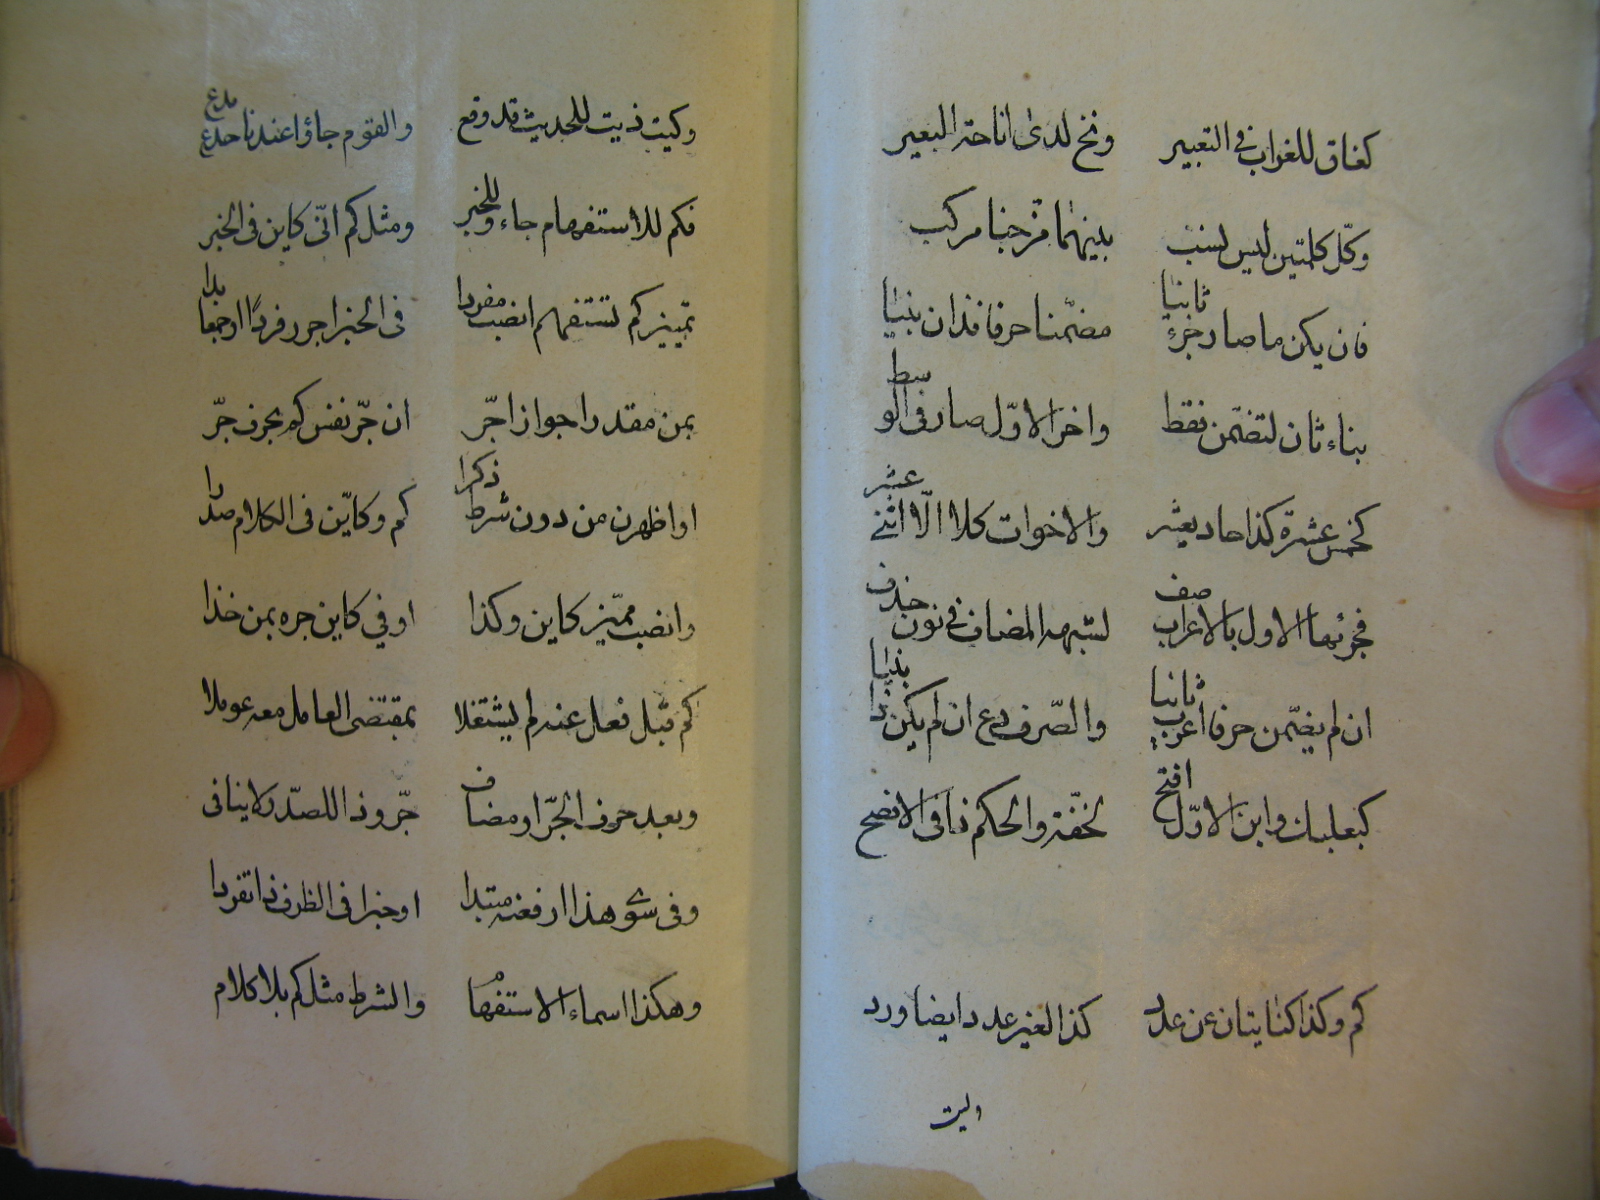 كغاق للغراب في التعبير ونخ لدى اناخة البعير
وكل كلمتين ليس نسب بينهما مزجنا مركب
فان يكن ما صار جزءا ثانيا مضمنا حرفا فذان بنيا
بناء ثان لتضمن فقط واخر الاول صار في الوسط
كخمس عشرة كذا حاد يعشر والاخوات كلا الا اثني عشر
فجزئها الاول بالاعراب صف لشبهه المضاف في نون حذف
ان لم يضمن حرفا اعرب ثانيا والصرف دع ان لم يكن ذا بنيا
كبعلبك وابن الاول افتح لخفة والحكم ذا في الافصح
كم وكذا كنايتان عن عدد كذا لغير عدد ايضا ورد
وليت
وكيت ذيت للحديث قد وقع والقوم جاؤا عندنا جدع مدع
فكم للاستفهام جاء وللخبر ومثل كم اتى كاين في الخبر
تمييز كم تستفهم انصب مفردا في الخبر اجرر فردا او جمعا بدا
بمن مقدرا جوازا جر ان جر نفس كم بحرف جر
او اظهرن من دون شرط ذكرا كم وكاين في الكلام صدرا
وانصب مميز كاين وكذا او في كاين جره بمن خذا
كم قبل فعل عنه لم يشتغلا بمقتضى العامل معه عوملا
وبعد حرف الجر او مضاف جر وذا للصدر لا ينافي
وفي سوى هذا ارفعنه مبتدا او خبرا في الظرف ذا تفردا
وهكذا اسماء الاستفهام والشرط مثل كم بلا كلام